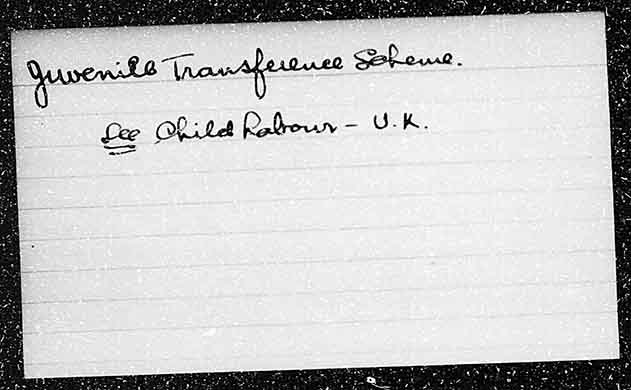 Juvenile Transference Scheme.
See Child Labour - U.K.